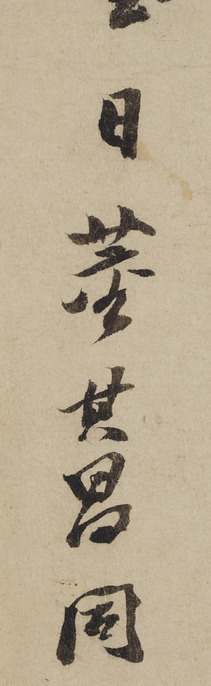 日董其昌同